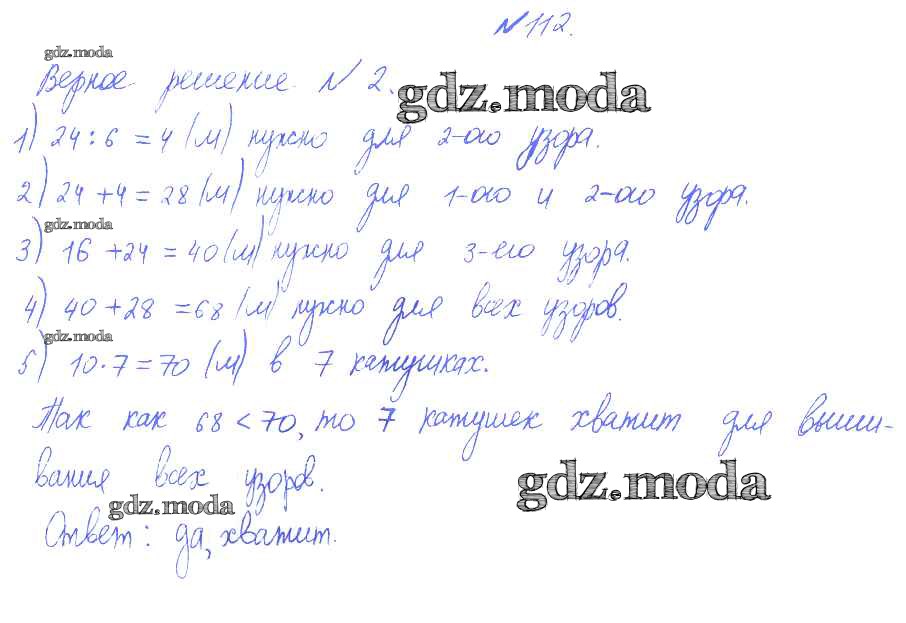 №112.
gdz.moda
Верное решение №2.
gdz.moda
1) 24:6=4(м) нужно для 2-ого узора.
2) 24+4=28(м) нужно для 1-ого и 2-ого узора.
gdz.moda
3) 16+24=40(м) нужно для 3-его узора.
4) 40+28=68(м) нужно для всех узоров.
gdz.moda
5) 10·7=70(м) в 7 катушках.
Так как 68<70, то 7 катушек хватит для выши-
вания всех узоров.
gdz.moda
gdz.moda
Ответ: да, хватит.